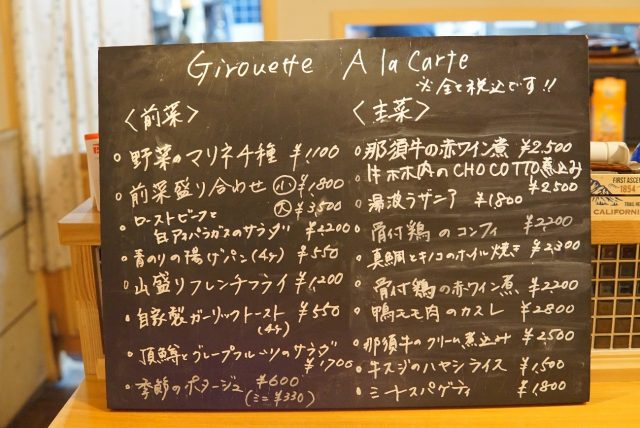 Girouette A la Carte
※全て税込です!!
〈前菜〉
野菜のマリネ4種 ¥1,100
前菜盛り合わせ 小 ¥1,800
大 ¥3,500
ローストビーフと
白アスパラガスのサラダ ¥2200
青のりの揚げパン(4ヶ) ¥550
山盛りフレンチフライ ¥1,200
自家製ガーリックトースト ¥550
(4ヶ)
頂鱒とグレープフルーツのサラダ
¥1,700
季節のポタージュ ¥600
(ミニ ¥330)
〈主菜〉
那須牛の赤ワイン煮 ¥2,500
牛ホホ肉のCHOCOTTO煮込み
¥2500
湯波ラザニア ¥1800
骨付鶏のコンフィ ¥2,200
真鯛とキノコのホイル焼き ¥2,300
骨付鶏の赤ワイン煮 ¥2200
鴨モモ肉のカスレ ¥2800
那須牛のクリーム煮込み ¥2500
牛スジのハヤシライス ¥1,500
ミートスパゲティ ¥1,800
FIRST ASCENT
1854
CALIFORNIA